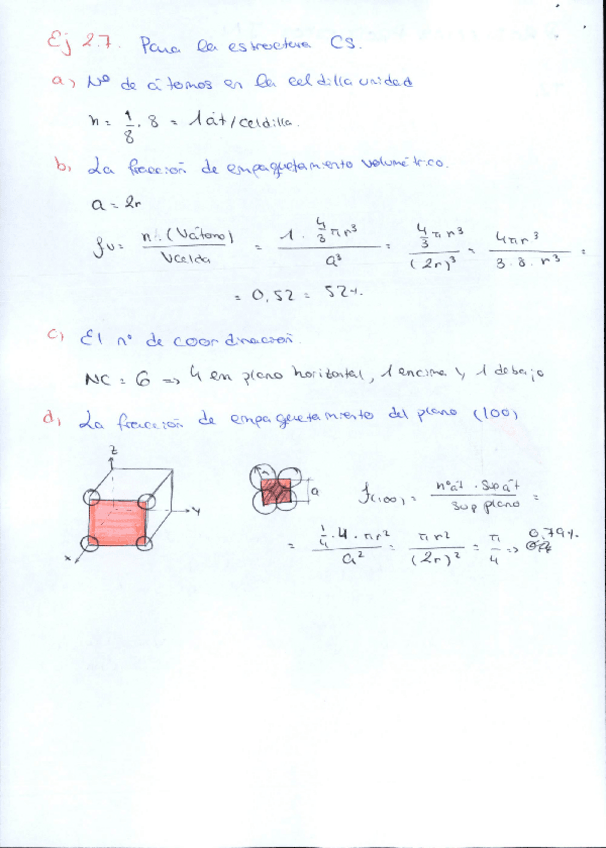 Ej 2.7. Para la estructura CS.
a) Nº de átomos en la celdilla unidad
n = 1/8 · 8 = 1 át/celdilla.
b) La fracción de empaquetamiento volumétrico.
a = 2r
fv = nº·(Vátomo)/Vcelda = 1 · 4/3 π r³ / a³ = 4/3 π r³ / (2r)³ = 4πr³ / 3·8·r³ =
= 0,52 = 52%.
c) El nº de coordinación.
NC = 6 => 4 en plano horizontal, 1 encima y 1 debajo
d) La fracción de empaquetamiento del plano (100)
z
y
x
a
f(100) = nºát · Sup át / Sup plano =
= 1/4 · 4 · πr² / a² = πr² / (2r)² = π/4 => 0,79%